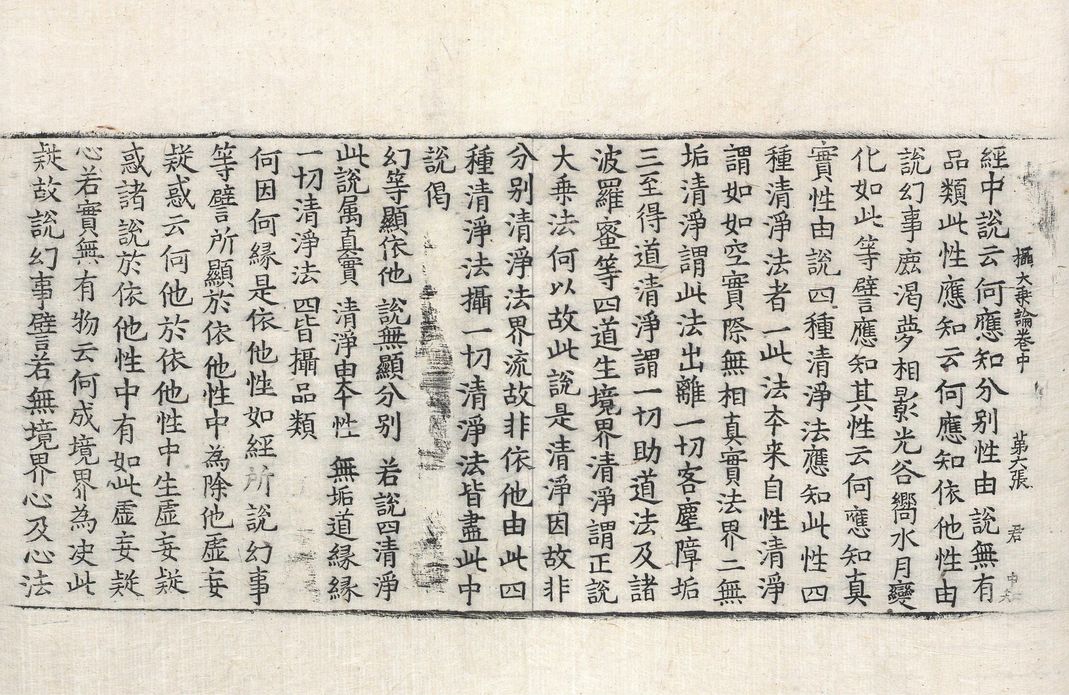 攝大乘論卷中 苐六張 君
經中說云何應知分別性由說無有
品類此性應知云何應知依他性由
說幻事鹿渴夢相影光谷嚮水月變
化如此等譬應知其性云何應知真
實性由說四種清淨法應知此性四
種清淨法者一此法夲来自性清淨
謂如如空實際無相真實法界二無
垢清淨謂此法出離一切客塵障垢
三至得道清淨謂一切助道法及諸
波羅蜜等四道生境界清淨謂正說
大乗法何以故此說是清淨因故非
分別清淨法界流故非依他由此四
種清淨法攝一切清淨法皆盡此中
說偈
幻等顯依他 說無顯分別 若說四清淨
此說属真實 清淨由夲性 無垢道縁縁
一切清淨法 四皆攝品類
何因何縁是依他性如經所說幻事
等譬所顯於依他性中為除他虛妄
疑惑云何他於依他性中生虛妄疑
惑諸說於依他性中有如此虛妄疑
心若實無有物云何成境界為决此
疑故說幻事譬若無境界心及心法